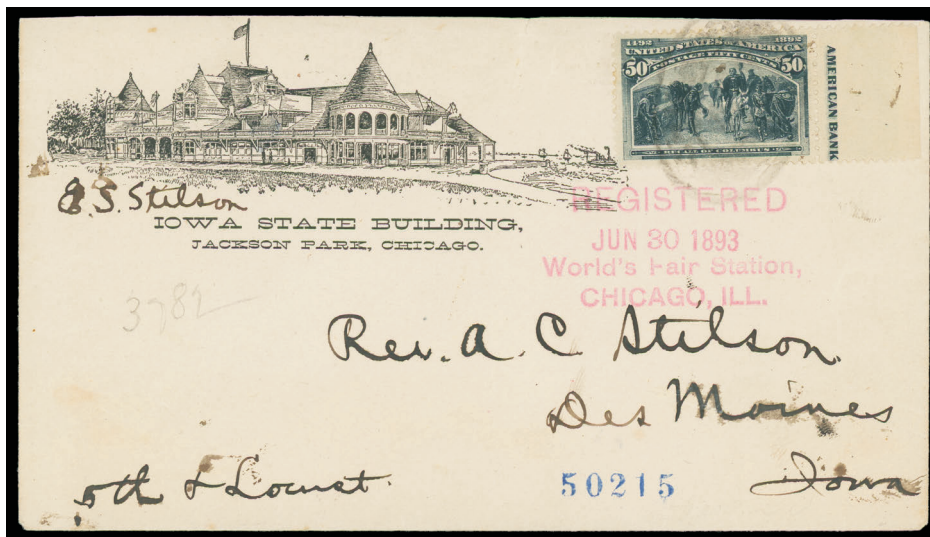 1492 1892
UNITED STATES OF AMERICA
POSTAGE FIFTY CENTS
50 50
RECALL OF COLUMBUS
AMERICAN BANK
E. S. Stilson
IOWA STATE BUILDING,
JACKSON PARK, CHICAGO.
REGISTERED
JUN 30 1893
World's Fair Station,
CHICAGO, ILL.
3782
Rev. A. C. Stilson
Des Moines
Iowa
5th & Locust.
50215